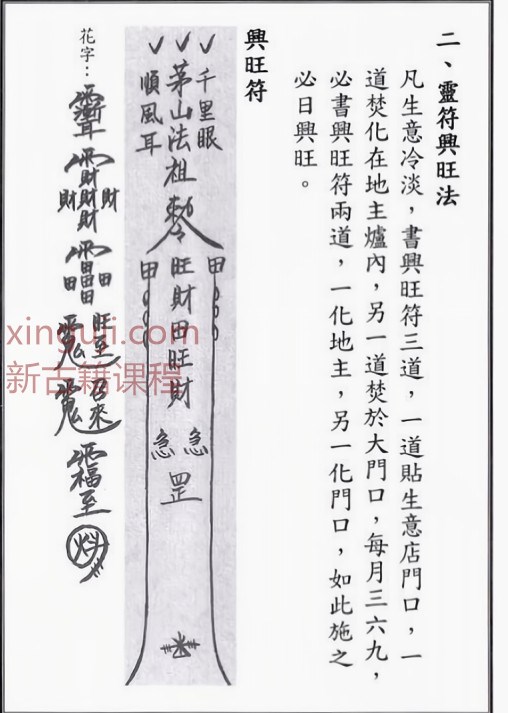 二、靈符興旺法
凡生意冷淡，書興旺符三道，一道貼生意店門口，一
道焚化在地主爐內，另一道焚於大門口，每月三六九，
必書興旺符兩道，一化地主，另一化門口，如此施之
必日興旺。
興旺符
千里眼
茅山法祖敕令
順風耳
旺財田旺財
急急
罡
花字：
財財財財財
田田田田
旺至
召來
福至
xinguji.com
新古籍课程